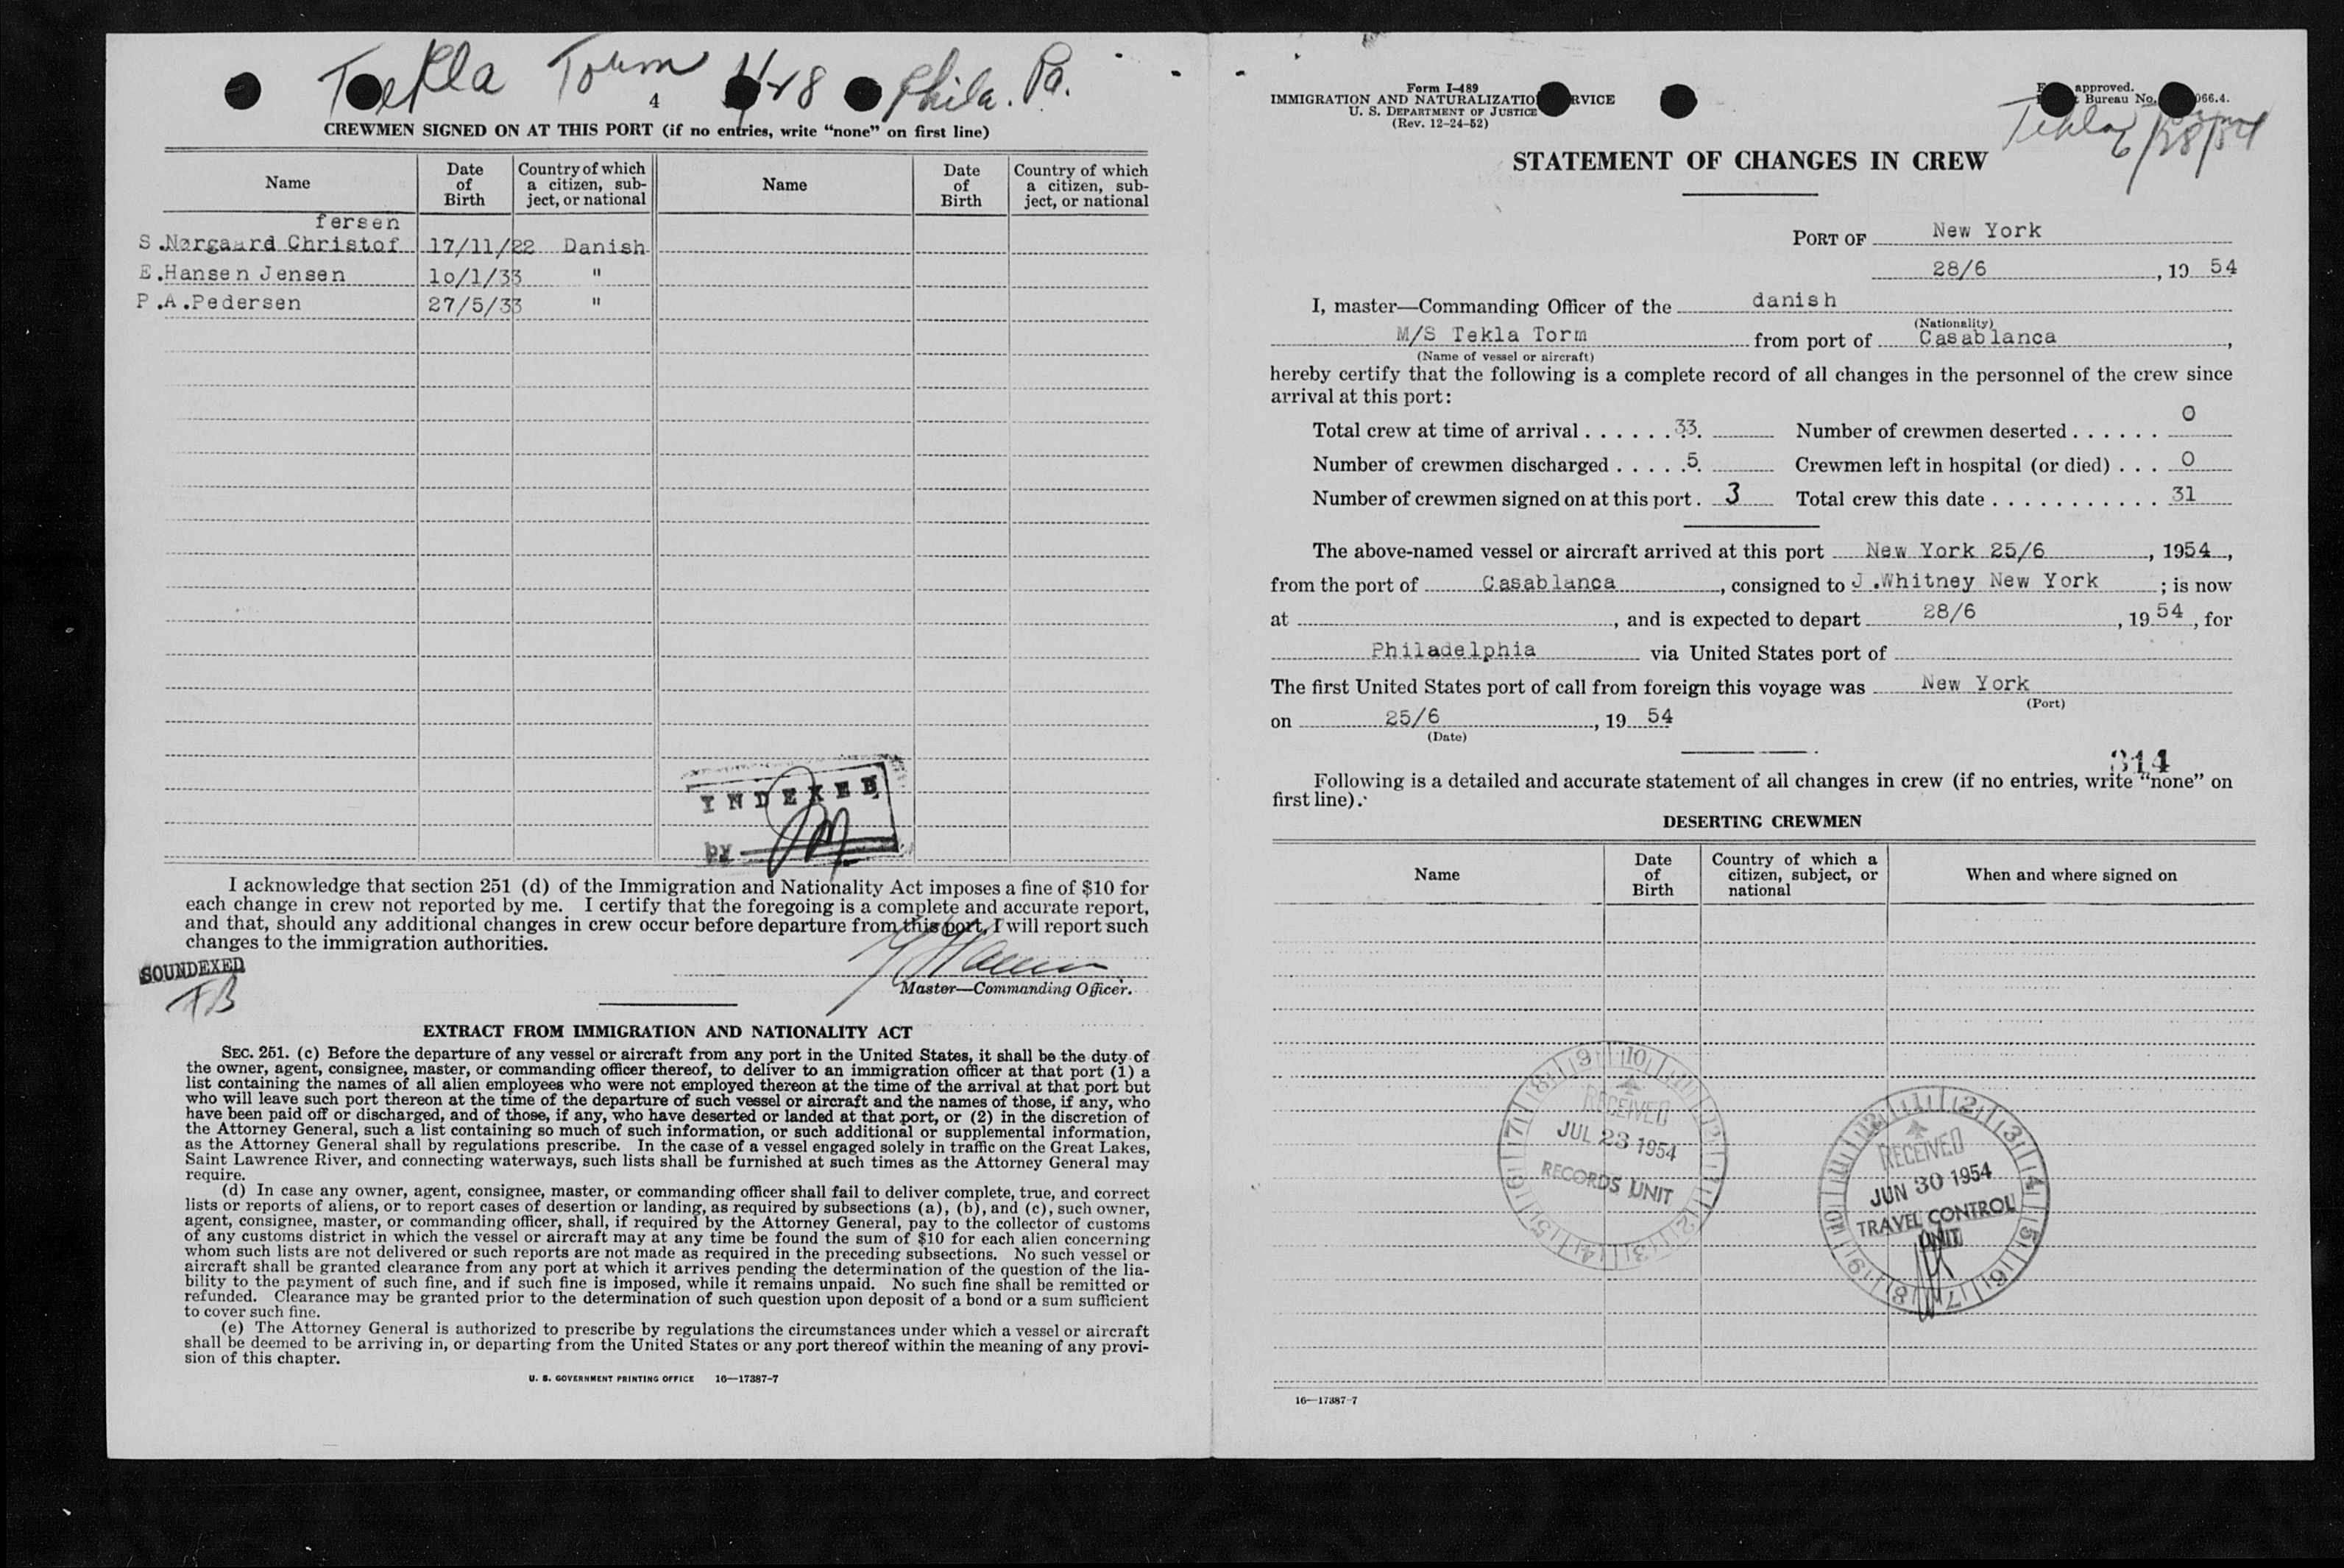 Tekla Torm Phila. Pa.
4
CREWMEN SIGNED ON AT THIS PORT (if no entries, write “none” on first line)
Name Date of Birth Country of which a citizen, sub-ject, or national Name Date of Birth Country of which a citizen, sub-ject, or national
fersen
S.Nørgaard Christof 17/11/22 Danish
E.Hansen Jensen 1o/1/33 "
P.A.Pedersen 27/5/33 "
INDEXED
by
I acknowledge that section 251 (d) of the Immigration and Nationality Act imposes a fine of $10 for
each change in crew not reported by me. I certify that the foregoing is a complete and accurate report,
and that, should any additional changes in crew occur before departure from this port, I will report such
changes to the immigration authorities.
SOUNDEXED
FB
Master—Commanding Officer.
EXTRACT FROM IMMIGRATION AND NATIONALITY ACT
SEC. 251. (c) Before the departure of any vessel or aircraft from any port in the United States, it shall be the duty of
the owner, agent, consignee, master, or commanding officer thereof, to deliver to an immigration officer at that port (1) a
list containing the names of all alien employees who were not employed thereon at the time of the arrival at that port but
who will leave such port thereon at the time of the departure of such vessel or aircraft and the names of those, if any, who
have been paid off or discharged, and of those, if any, who have deserted or landed at that port, or (2) in the discretion of
the Attorney General, such a list containing so much of such information, or such additional or supplemental information,
as the Attorney General shall by regulations prescribe. In the case of a vessel engaged solely in traffic on the Great Lakes,
Saint Lawrence River, and connecting waterways, such lists shall be furnished at such times as the Attorney General may
require.
(d) In case any owner, agent, consignee, master, or commanding officer shall fail to deliver complete, true, and correct
lists or reports of aliens, or to report cases of desertion or landing, as required by subsections (a), (b), and (c), such owner,
agent, consignee, master, or commanding officer, shall, if required by the Attorney General, pay to the collector of customs
of any customs district in which the vessel or aircraft may at any time be found the sum of $10 for each alien concerning
whom such lists are not delivered or such reports are not made as required in the preceding subsections. No such vessel or
aircraft shall be granted clearance from any port at which it arrives pending the determination of the question of the lia-
bility to the payment of such fine, and if such fine is imposed, while it remains unpaid. No such fine shall be remitted or
refunded. Clearance may be granted prior to the determination of such question upon deposit of a bond or a sum sufficient
to cover such fine.
(e) The Attorney General is authorized to prescribe by regulations the circumstances under which a vessel or aircraft
shall be deemed to be arriving in, or departing from the United States or any port thereof within the meaning of any provi-
sion of this chapter.
U. S. GOVERNMENT PRINTING OFFICE 16—17387-7
Form I-489
IMMIGRATION AND NATURALIZATIO RVICE
U. S. DEPARTMENT OF JUSTICE
(Rev. 12-24-52)
approved.
Bureau No. 066.4.
Tekla Torm
6/28/54
STATEMENT OF CHANGES IN CREW
PORT OF New York
28/6, 19 54
I, master—Commanding Officer of the danish
(Nationality)
M/S Tekla Torm from port of Casablanca,
(Name of vessel or aircraft)
hereby certify that the following is a complete record of all changes in the personnel of the crew since
arrival at this port:
Total crew at time of arrival 33. Number of crewmen deserted 0
Number of crewmen discharged 5. Crewmen left in hospital (or died) 0
Number of crewmen signed on at this port. 3 Total crew this date 31
The above-named vessel or aircraft arrived at this port New York 25/6, 1954,
from the port of Casablanca, consigned to J.Whitney New York; is now
at , and is expected to depart 28/6, 19 54, for
Philadelphia via United States port of
The first United States port of call from foreign this voyage was New York
(Port)
on 25/6, 19 54
(Date)
314
Following is a detailed and accurate statement of all changes in crew (if no entries, write “none” on
first line).
DESERTING CREWMEN
Name Date of Birth Country of which a citizen, subject, or national When and where signed on
RECEIVED
JUL 23 1954
RECORDS UNIT
RECEIVED
JUN 30 1954
TRAVEL CONTROL
UNIT
16—17387-7